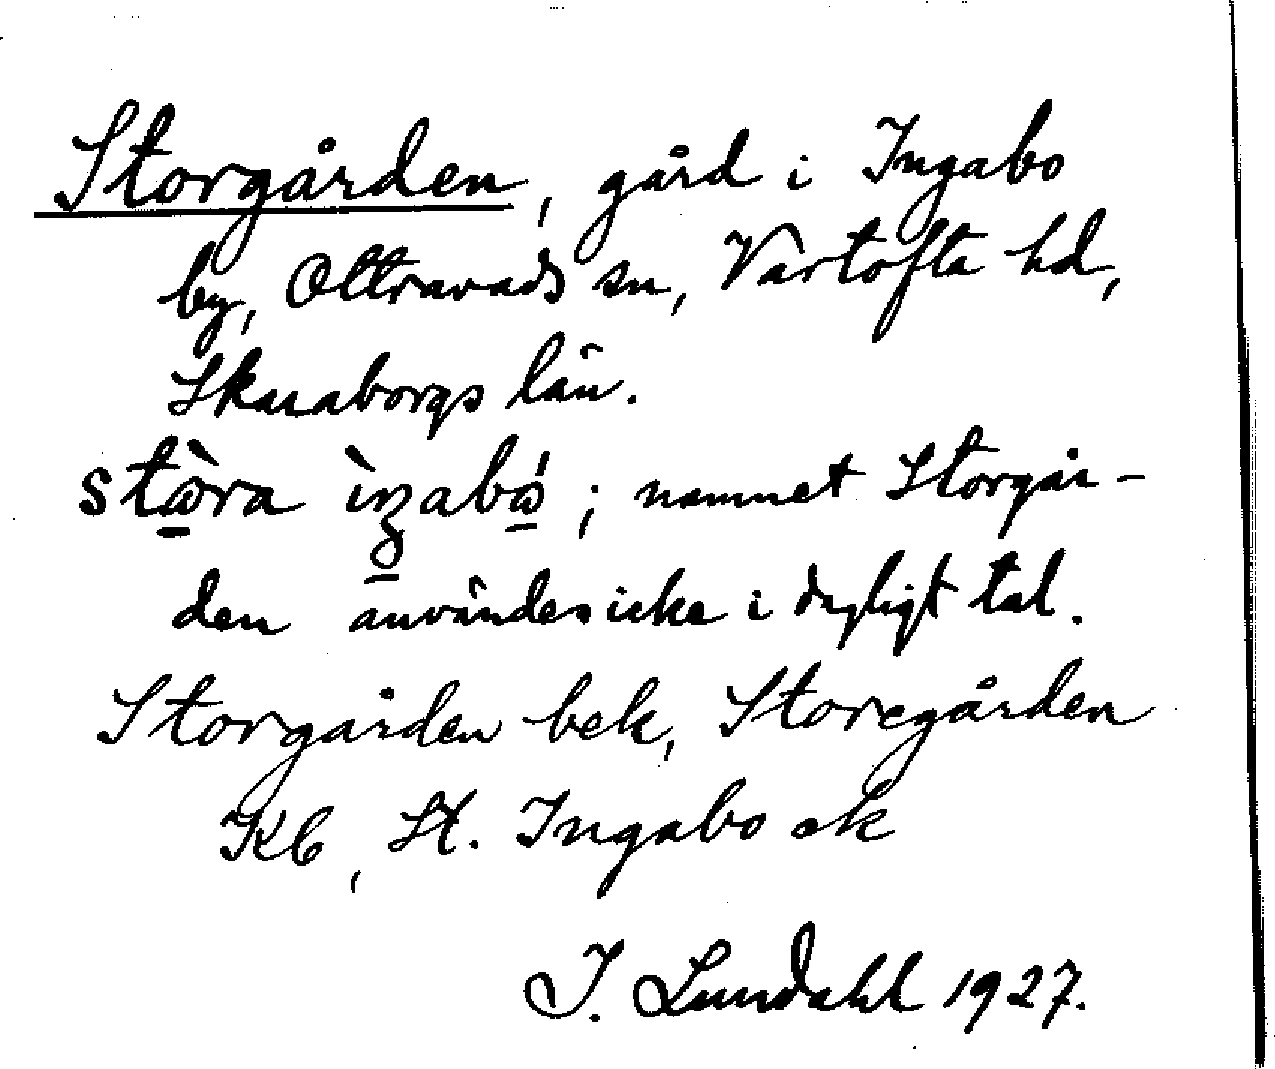 Storgården, gård i Ingabo
by, Ottravads sn, Vartofta hd,
Skaraborgs län.
stɷ̀ra ìŋabɷ́; namnet Storgår-
den användes icke i dagligt tal.
Storgården bek, Storegården
Kb, St. Ingabo ek
I. Lundahl 1927.